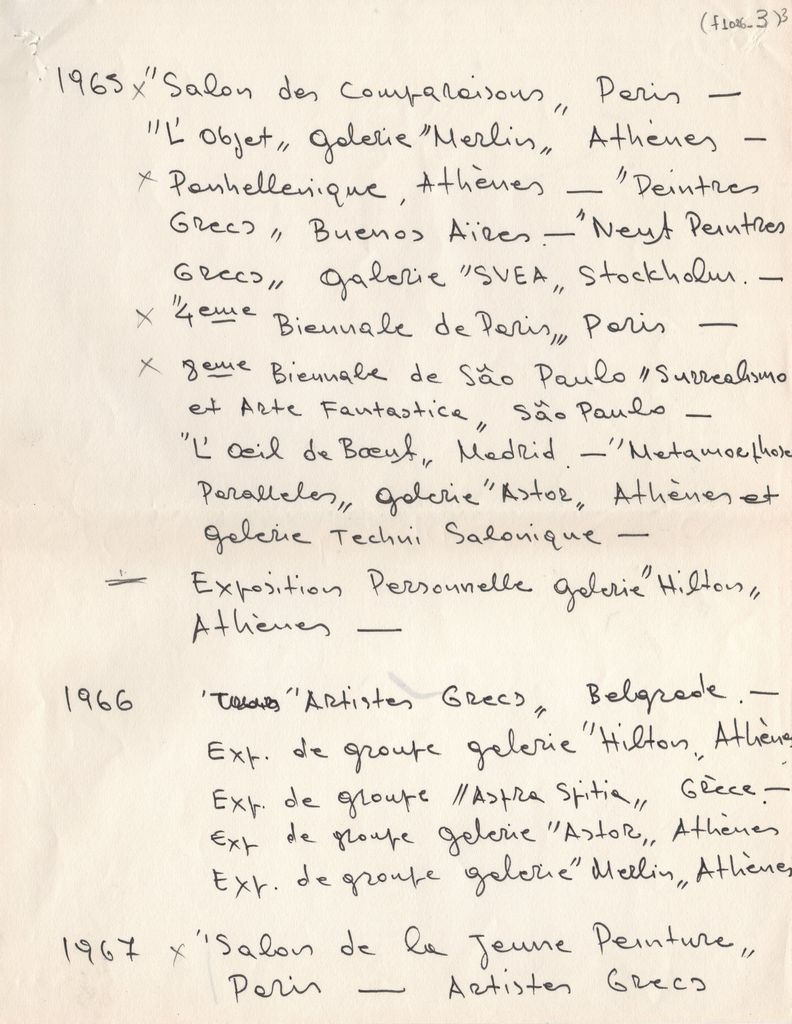 (f1026-3)³
1965 x "Salon des Comparaisons„ Paris —
"L'Objet„ galerie "Merlin„ Athènes —
x Panhellenique, Athènes — "Peintres
Grecs„ Buenos Aïres. — "Neuf Peintres
Grecs„ galerie "SVEA„ Stockholm. —
x "4eme Biennale de Paris„ Paris —
x 8eme Biennale de São Paulo "Surrealismo
et Arte Fantastica„ São Paulo —
"L'Oeil de Bœuf„ Madrid. — "Metamorphose
Paralleles„ galerie "Astor„ Athènes et
galerie Techni Salonique —
Exposition Personnelle galerie "Hilton„
Athènes —
1966 "Artistes Grecs„ Belgrade. —
Exp. de groupe galerie "Hilton„ Athènes
Exp. de groupe "Aspra Spitia„ Grèce. —
Exp de groupe galerie "Astor„ Athènes
Exp. de groupe galerie "Merlin„ Athènes
1967 x "Salon de la Jeune Peinture„
Paris — Artistes Grecs